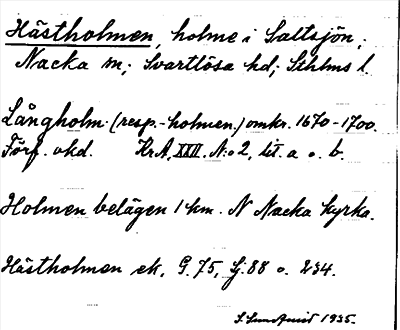 Hästholmen, holme i Saltsjön,
Nacka sn; Svartlösa hd; Sthlms l.
Långholm (resp. -holmen) omkr. 1670-1700.
Förf. okd. KrA, XXII. N:o 2, lit. a o. b.
Holmen belägen 1 km. N Nacka kyrka.
Hästholmen ek. G. 75, Gj: 88 o. 234.
S. Sundquist 1935.